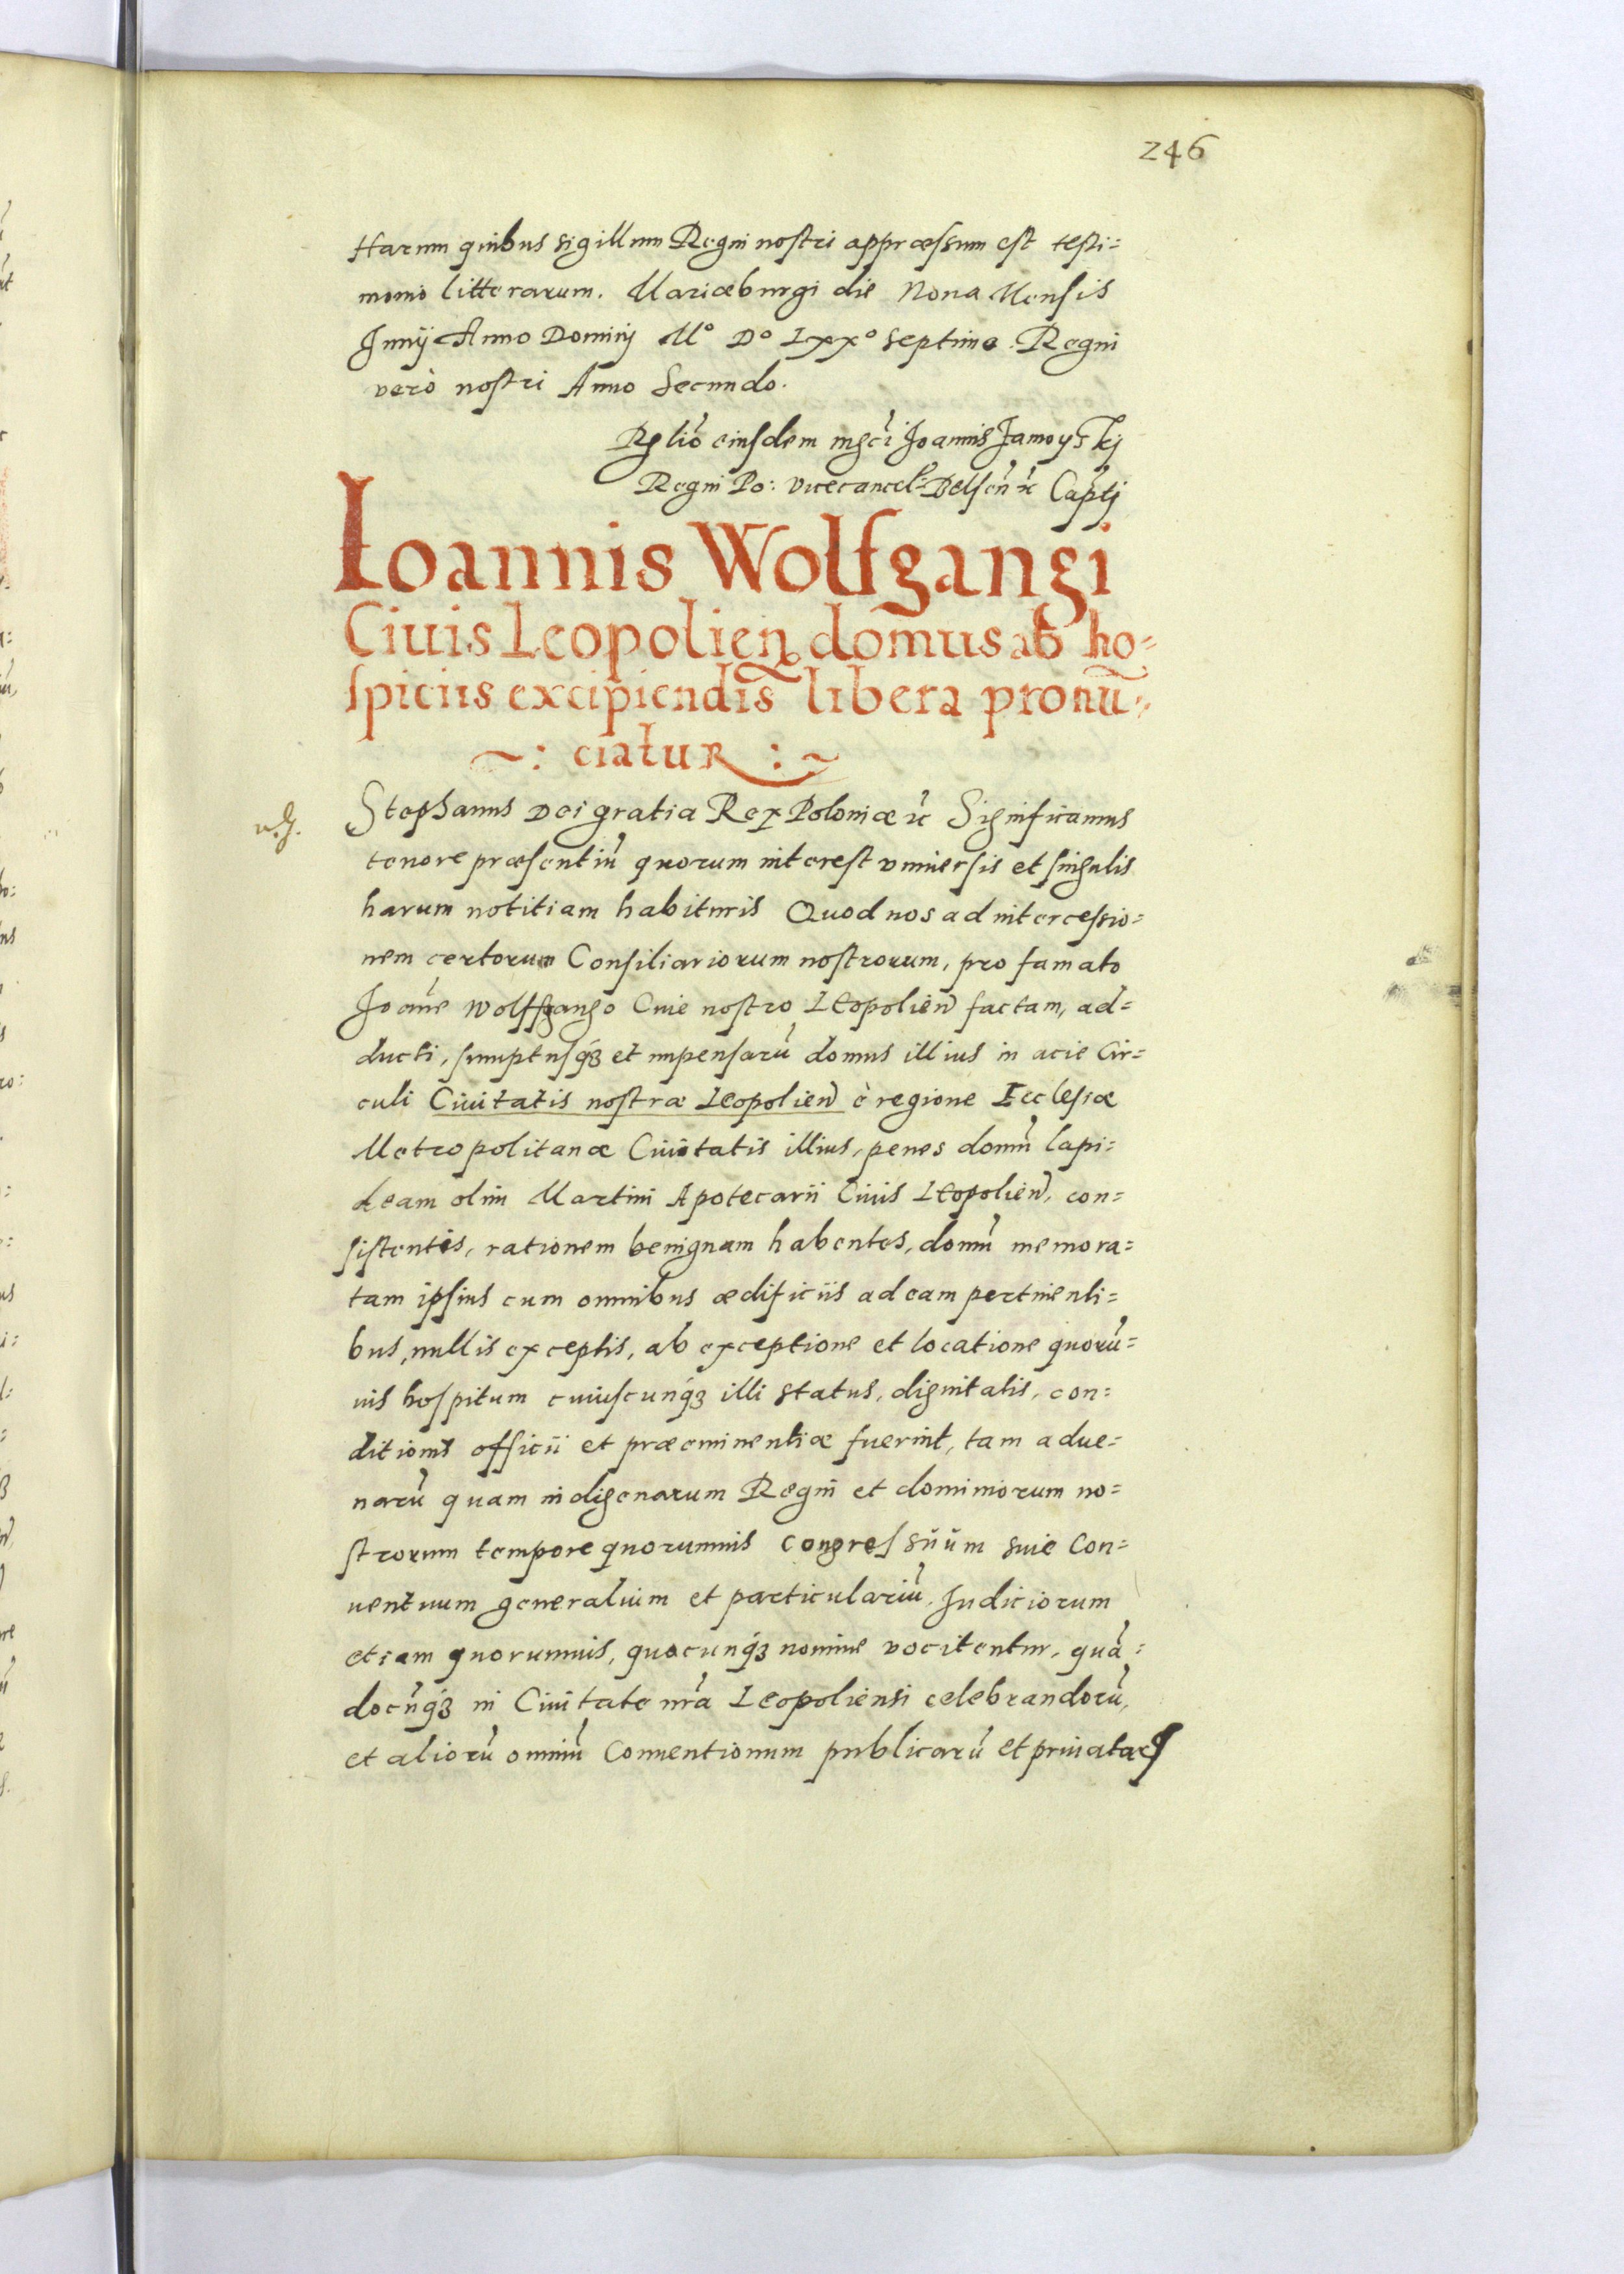 246
Harum quibus sigillum Regni nostri appræssum est testi=
monio litterarum. Mariæburgi die Nona Mensis
Junij Anno Dominij Mº Dº LXXº septimo. Regni
verò nostri Anno Secundo.
Relio eiusdem mgci Joannis Zamoyskj
Regni Po: Vicecancel: Belsen ꝛc Captj
Ioannis Wolfgangi
Ciuis Leopolien domus ab ho=
spiciis excipiendis libera pronū=
~: ciatur :~
Stephanus Dei gratia Rex Poloniæ ꝛc Significamus
tenore præsentiū quorum interest vniuersis et singulis
harum notitiam habituris Quod nos ad intercessio=
nem certorum Consiliariorum nostrorum, pro famato
Joāne Wolffgango Ciue nostro Leopolien factam, ad=
ducti, sumptusq́ꝫ et impensarū domus illius in acie Cir=
culi Ciuitatis nostræ Leopolien è regione Ecclesiæ
Metropolitanæ Ciuitatis illius, penes domū lapi=
deam olim Martini Apotecarii Ciuis Leopolien, con=
sistentis, rationem benignam habentes, domū memora=
tam ipsius cum omnibus ædificiis ad eam pertinenti=
bus, nullis exceptis, ab exceptione et locatione quorū=
uis hospitum cuiuscunq́ꝫ illi status, dignitatis, con=
ditionis officii et præeminentiæ fuerint, tam adue=
narū quam indigenarum Regni et dominiorum no=
strorum tempore quorumuis congressuum siue Con=
uentuum generalium et particulariū, Judiciorum
etiam quorumuis, quocunq́ꝫ nomine vocitentur, quā=
docūq́ꝫ in Ciuitate nrā Leopoliensi celebrandorū,
et aliorū omniū Conuentionum publicarū et priuataꝝ